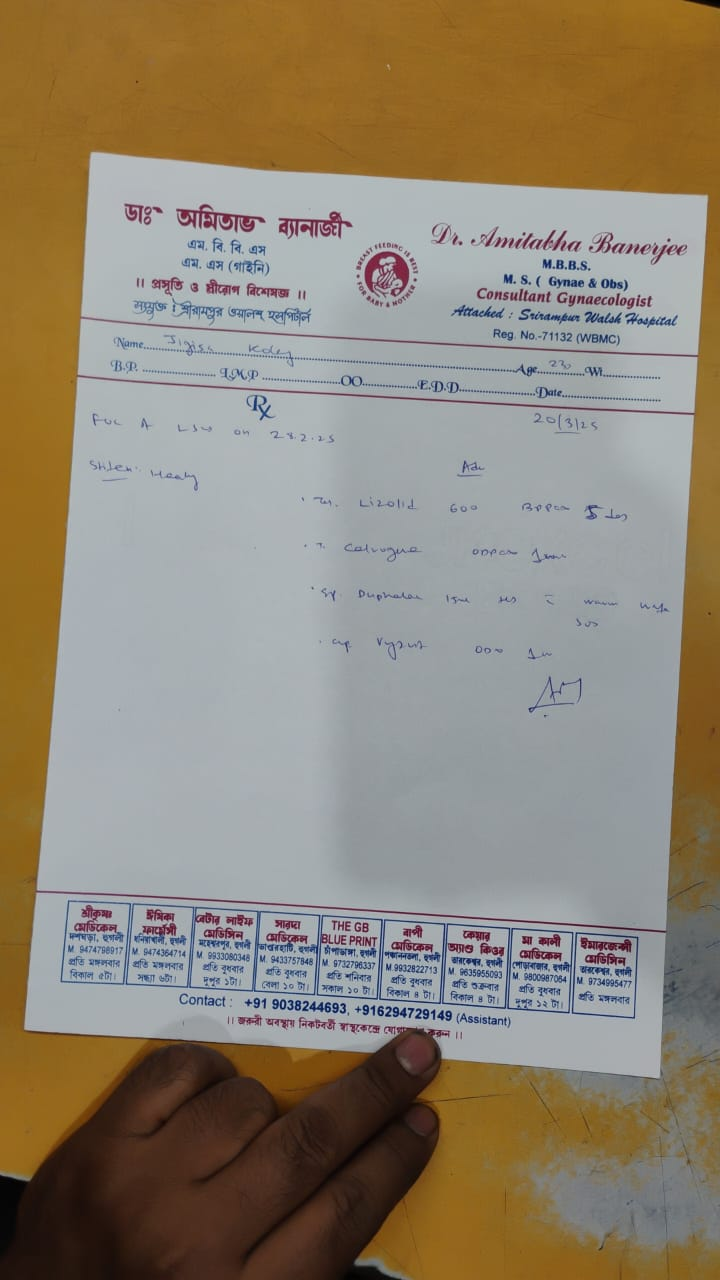 ডাঃ অমিতাভ ব্যানার্জী
এম. বি. বি. এস
এম. এস (গাইনি)
।। প্রসূতি ও স্ত্রীরোগ বিশেষজ্ঞ ।।
সংযুক্ত : শ্রীরামপুর ওয়ালশ হসপিটাল
BREAST FEEDING IS BEST
FOR BABY & MOTHER
Dr. Amitabha Banerjee
M.B.B.S.
M. S. ( Gynae & Obs)
Consultant Gynaecologist
Attached : Srirampur Walsh Hospital
Reg. No.-71132 (WBMC)
Name Koley Age 23 Wt
B.P. L.M.P OO E.D.D Date
Rx
20/3/25
on 28.2.25
Adv
Healthy
Lizolid 600 5
T.
Syp. Duphalac warm
Cap
শ্রীকৃষ্ণ মেডিকেল
দশঘড়া, হুগলী
M. 9474798917
প্রতি মঙ্গলবার
বিকাল ৫টা।
ঈষিকা ফার্মেসী
ধনিয়াখালী, হুগলী
M. 9474364714
প্রতি মঙ্গলবার
সন্ধ্যা ৬টা।
বেটার লাইফ মেডিসিন
মহেশ্বরপুর, হুগলী
M. 9933080348
প্রতি বুধবার
দুপুর ১টা।
সারদা মেডিকেল
ভাণ্ডারহাটি, হুগলী
M. 9433757848
প্রতি বুধবার
বেলা ১০ টা।
THE GB BLUE PRINT
চাঁপাডাঙ্গা, হুগলী
M. 9732796337
প্রতি শনিবার
সকাল ১০ টা।
বাপী মেডিকেল
পঞ্চাননতলা, হুগলী
M.9932822713
প্রতি বুধবার
বিকাল ৪ টা।
কেয়ার অ্যাণ্ড কিওর
তারকেশ্বর, হুগলী
M. 9635955093
প্রতি শুক্রবার
বিকাল ৪ টা।
মা কালী মেডিকেল
পোড়াবাজার, হুগলী
M. 9800987064
প্রতি বুধবার
দুপুর ১২ টা।
ইমারজেন্সী মেডিসিন
তারকেশ্বর, হুগলী
M. 9734995477
প্রতি মঙ্গলবার
Contact : +91 9038244693, +916294729149 (Assistant)
।। জরুরী অবস্থায় নিকটবর্তী স্বাস্থকেন্দ্রে করুন ।।